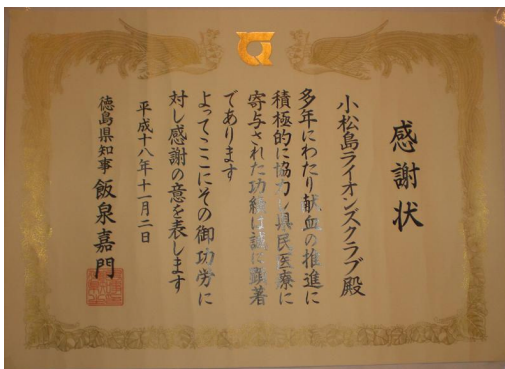 感謝状
小松島ライオンズクラブ殿
多年にわたり献血の推進に
積極的に協力し県民医療に
寄与された功績は誠に顕著
であります
よってここにその御功労に
対し感謝の意を表します
平成十八年十一月二日
徳島県知事 飯泉嘉門